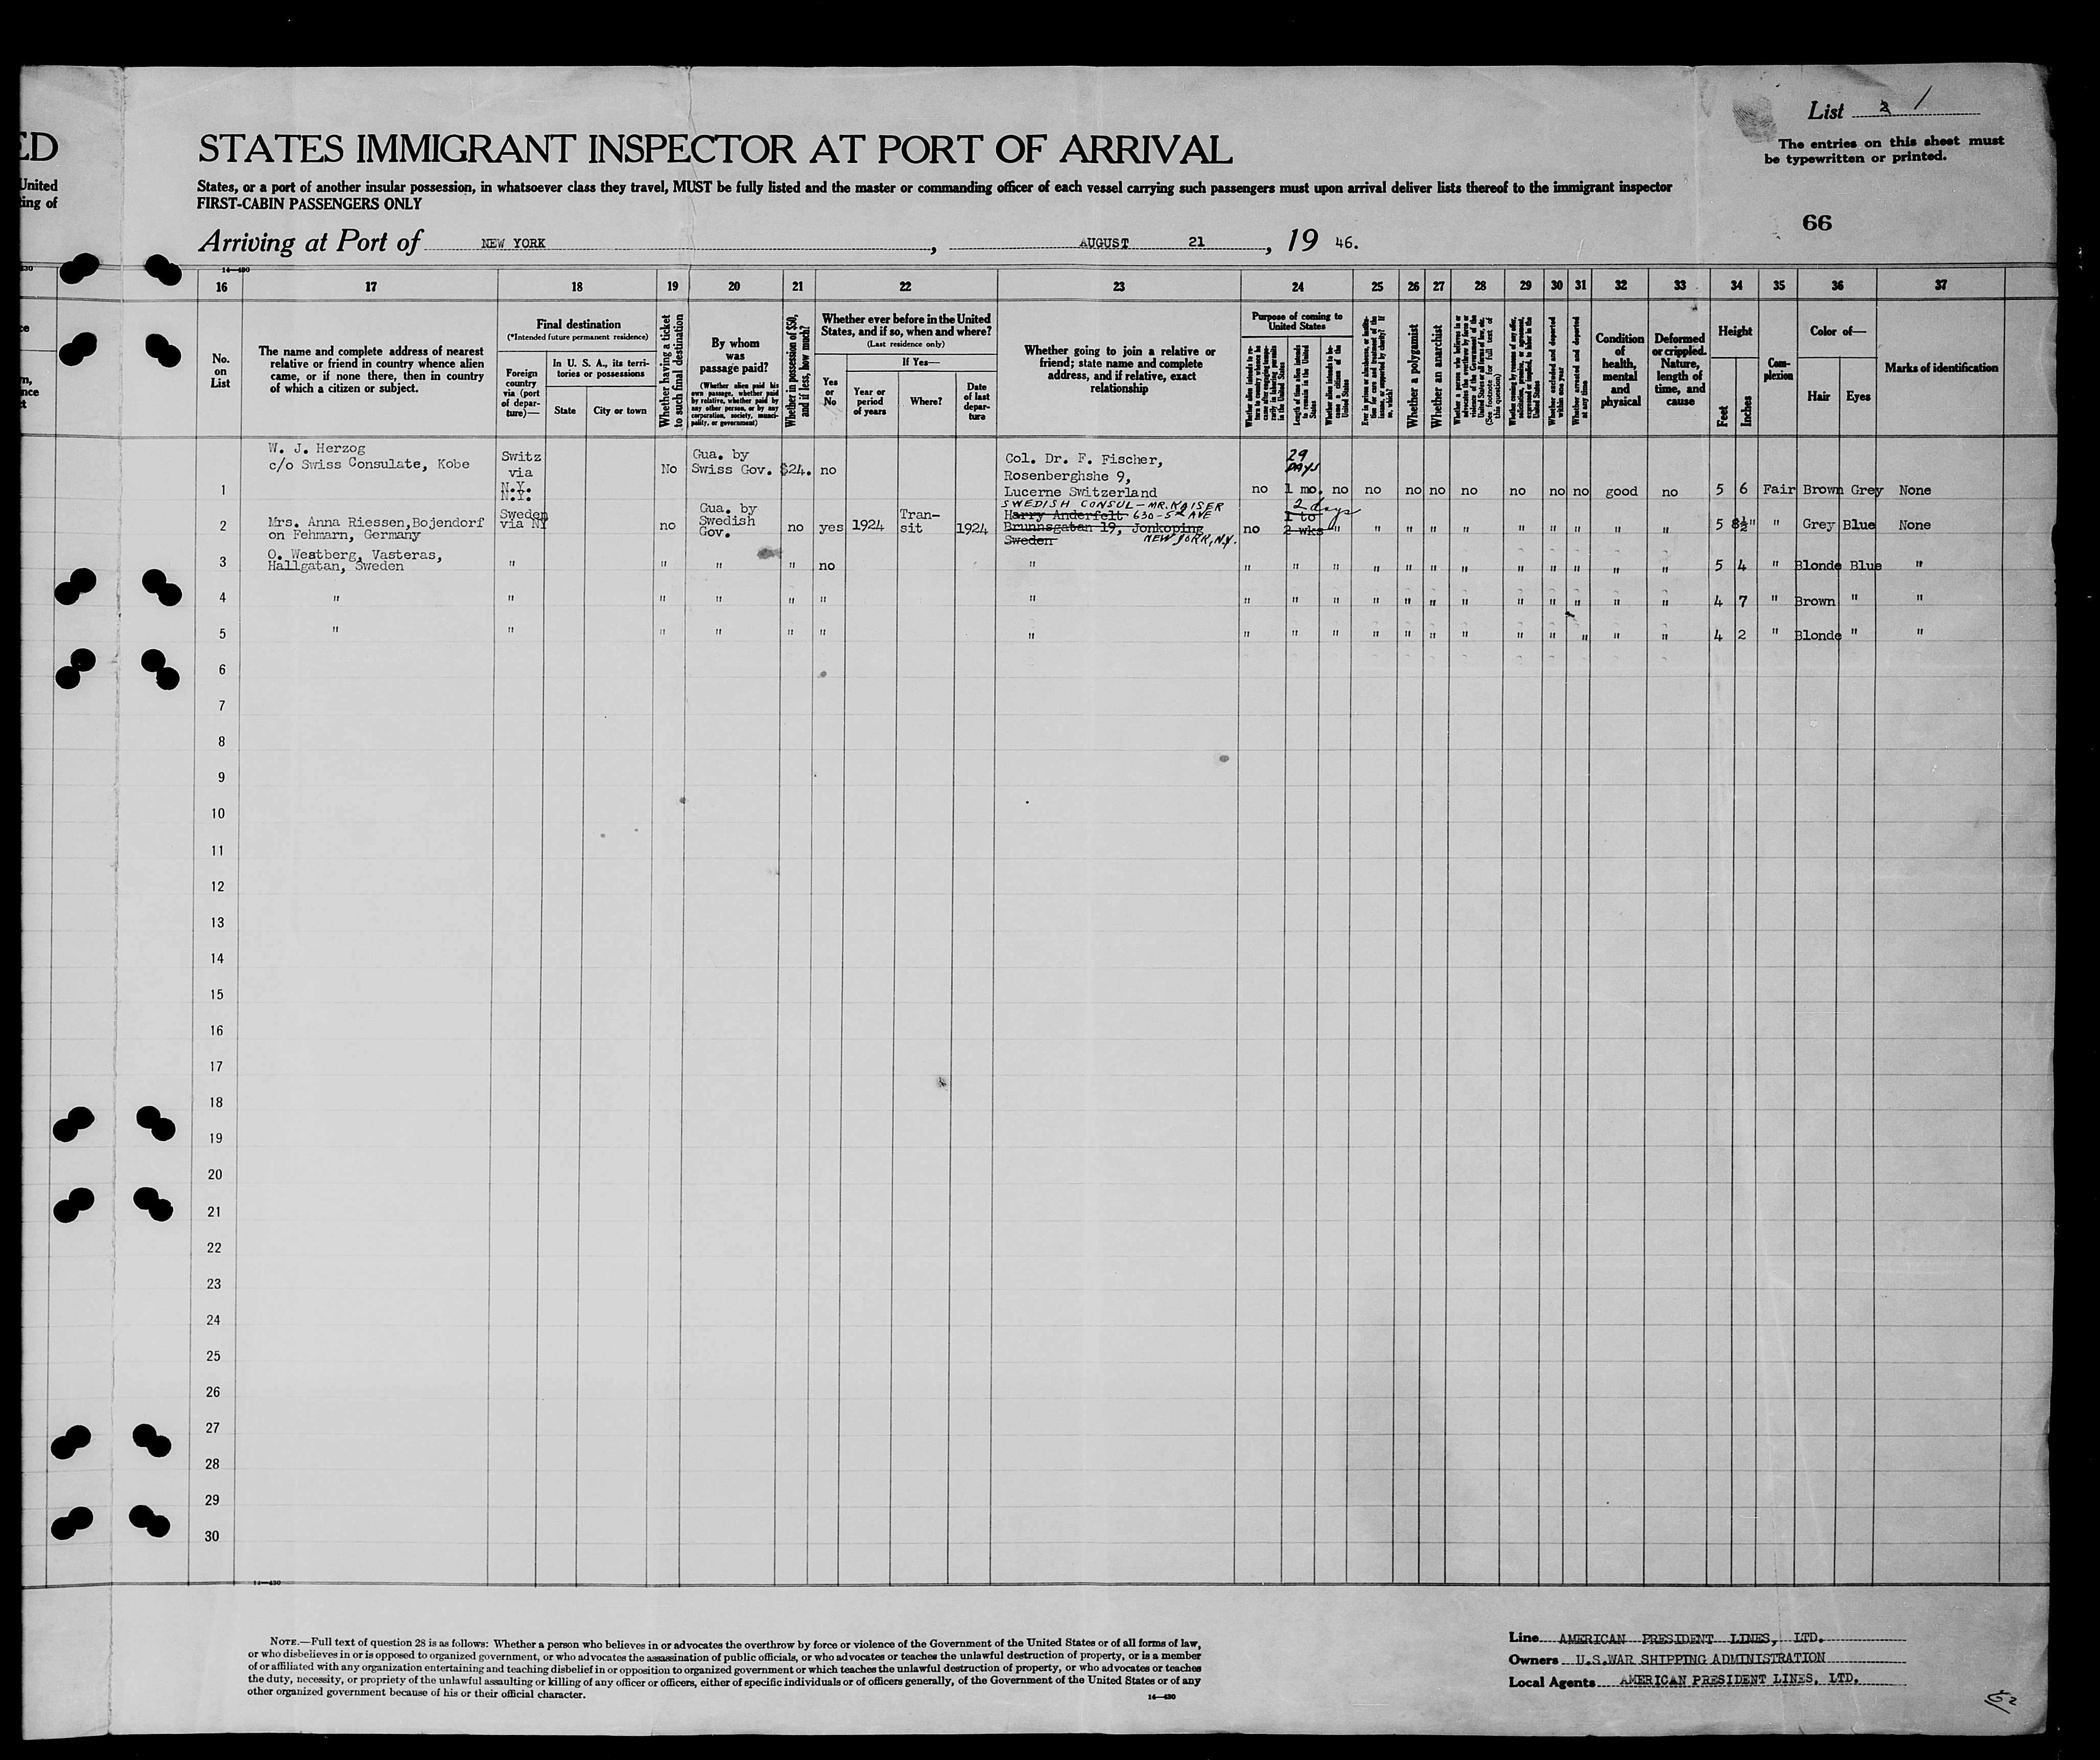 List 2 1
The entries on this sheet must
be typewritten or printed.
66
ED
STATES IMMIGRANT INSPECTOR AT PORT OF ARRIVAL
United
ing of
States, or a port of another insular possession, in whatsoever class they travel, MUST be fully listed and the master or commanding officer of each vessel carrying such passengers must upon arrival deliver lists thereof to the immigrant inspector
FIRST-CABIN PASSENGERS ONLY
Arriving at Port of NEW YORK, AUGUST 21, 19 46.
14—430
16 17 18 19 20 21 22 23 24 25 26 27 28 29 30 31 32 33 34 35 36 37
No.
on
List
The name and complete address of nearest
relative or friend in country whence alien
came, or if none there, then in country
of which a citizen or subject.
Final destination
(*Intended future permanent residence)
Foreign
country
via (port
of depar-
ture)—
In U. S. A., its terri-
tories or possessions
State
City or town
Whether having a ticket
to such final destination
By whom
was
passage paid?
(Whether alien paid his
own passage, whether paid
by relative, whether paid by
any other person, or by any
corporation, society, munici-
pality, or government)
Whether in possession of $50,
and if less, how much?
Whether ever before in the United
States, and if so, when and where?
(Last residence only)
Yes
or
No
If Yes—
Year or
period
of years
Where?
Date
of last
depar-
ture
Whether going to join a relative or
friend; state name and complete
address, and if relative, exact
relationship
Purpose of coming to
United States
Length of time alien intends
to remain in the United
States
Whether alien intends to be-
come a citizen of the
United States
Whether a polygamist
Whether an anarchist
Whether excluded and deported
within one year
Whether arrested and deported
at any time
Condition
of
health,
mental
and
physical
Deformed
or crippled.
Nature,
length of
time, and
cause
Height
Feet
Inches
Com-
plexion
Color of—
Hair
Eyes
Marks of identification
1 W. J. Herzog
c/o Swiss Consulate, Kobe
Switz
via
N.Y.
No
Gua. by
Swiss Gov.
$24. no
Col. Dr. F. Fischer,
Rosenberghshe 9,
Lucerne Switzerland
no
29
DAYS
1 mo. no no no no no no no no good no 5 6 Fair Brown Grey None
2 Mrs. Anna Riessen,Bojendorf
on Fehmarn, Germany
Sweden
via NY
no
Gua. by
Swedish
Gov.
no yes 1924
Tran-
sit
1924
SWEDISH CONSUL - MR. KAISER
Harry Anderfelt 630-5th AVE
Brunnsgatan 19, Jonkoping
Sweden NEW YORK, N.Y.
no
2 days
1 to
2 wks " " " " " " " " " " 5 8½" " Grey Blue None
3 O. Westberg, Vasteras,
Hallgatan, Sweden
" " " " no " " " " " " " " " " " " " 5 4 " Blonde Blue "
4 " " " " " " " " " " " " " " " " " " " 4 7 " Brown " "
5 " " " " " " " " " " " " " " " " " " " 4 2 " Blonde " "
6
7
8
9
10
11
12
13
14
15
16
17
18
19
20
21
22
23
24
25
26
27
28
29
30
14—430
NOTE.—Full text of question 28 is as follows: Whether a person who believes in or advocates the overthrow by force or violence of the Government of the United States or of all forms of law,
or who disbelieves in or is opposed to organized government, or who advocates the assassination of public officials, or who advocates or teaches the unlawful destruction of property, or is a member
of or affiliated with any organization entertaining and teaching disbelief in or opposition to organized government or which teaches the unlawful destruction of property, or who advocates or teaches
the duty, necessity, or propriety of the unlawful assaulting or killing of any officer or officers, either of specific individuals or of officers generally, of the Government of the United States or of any
other organized government because of his or their official character.
14—430
Line AMERICAN PRESIDENT LINES, LTD.
Owners U.S.WAR SHIPPING ADMINISTRATION
Local Agents AMERICAN PRESIDENT LINES, LTD.